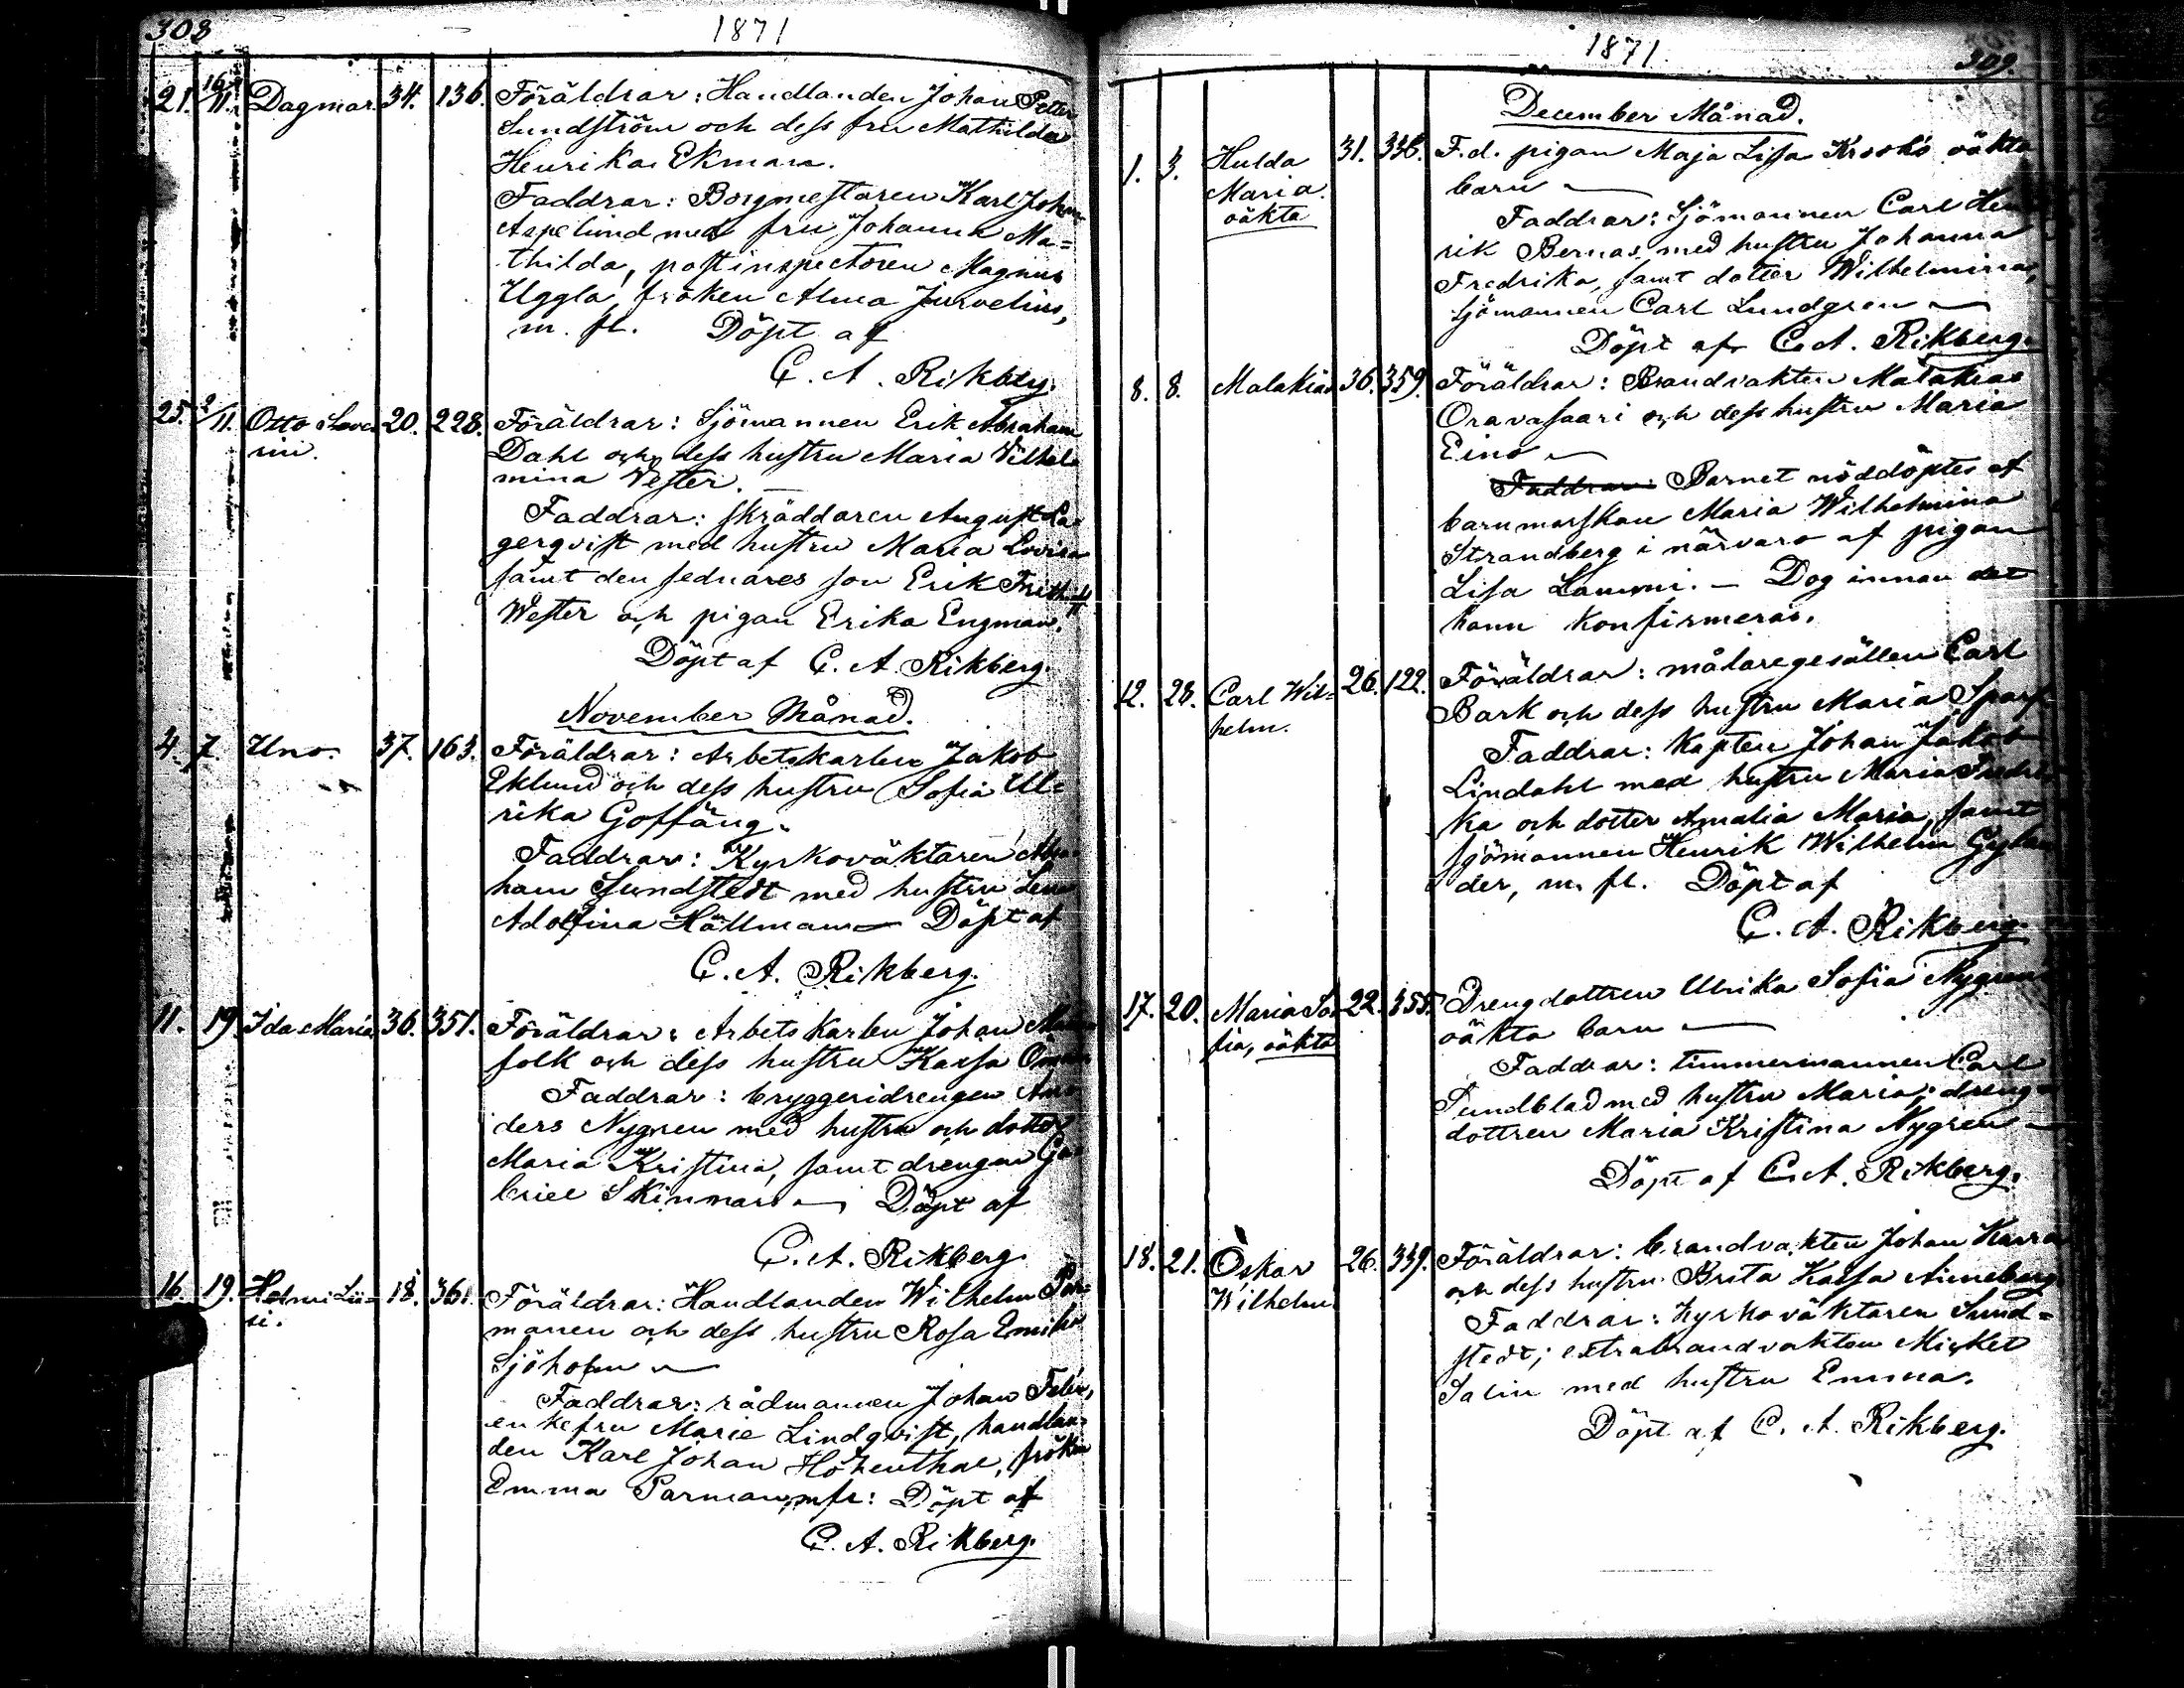 308
1871
21. 16/11. Dagmar. 34. 136. Föräldrar: Handlanden Johan Petter
Sundström och dess fru Mathilda
Henrika Ekman.
Faddrar: Borgmestaren Karl Johan
Aspelund med fru Johanna Ma=
thilda, postinspectoren Magnus
Uggla, fröken Alma Jurvelius,
m. fl. Döpt af
C. A. Rikberg.
25. 2/11. Otto 20. 228. Föräldrar: Sjömannen Erik Abraham
Dahl och dess hustru Maria Vilhel=
mina Wester.
Faddrar: skräddaren August La=
gerqvist med hustru Maria Lovisa
samt den sednares son Erik
Wester och pigan Erika Engman.
Döpt af C. A. Rikberg.
November Månad.
4. 7. Uno. 37. 163. Föräldrar: Arbetskarlen Jakob
Eklund och dess hustru Sofia Ul=
rika Goffäng.
Faddrar: Kyrkoväktaren Abra=
ham Sundstedt med hustru Lena
Adolfina Hällman — Döpt af
C. A. Rikberg.
11. 19. Ida Maria 36. 351. Föräldrar: Arbetskarlen Johan
folk och dess hustru Kajsa
Faddrar: bryggeridrengen An=
ders Nygren med hustru och dotter
Maria Kristina, samt drengen Ga=
briel Skinnars — Döpt af
C. A. Rikberg.
16. 19. Helmi Lii= 18. 361. Föräldrar: Handlanden Wilhelm Par=
si. manen och dess hustru Rosa Emilia
Sjöholm —
Faddrar: rådmannen Johan
enkefru Marie Lindqvist, handlan=
den Karl Johan Hohenthal, fröken
Emma Parman, mfl: Döpt af
C. A. Rikberg.
1871.
309.
December Månad.
1. 3. Hulda 31. 336. F.d. pigan Maja Lisa Kroskös oäkta
Maria barn —
oäkta
Faddrar: Sjömannen Carl Hen=
rik Bernas med hustru Johanna
Fredrika, samt dotter Wilhelmina,
sjömannen Carl Lundgren —
Döpt af C. A. Rikberg.
8. 8. Malakias 36. 359. Föräldrar: Brandvakten Malakias
Oravasaari och dess hustru Maria
Eino —
Faddrar: Barnet nöddöptes af
barnmorskan Maria Wilhelmina
Strandberg i närvaro af pigan
Lisa Lammi. — Dog innan det
hann konfirmeras.
12. 28. Carl Wil= 26. 122. Föräldrar: målaregesällen Carl
helm. Bark och dess hustru Maria Sparf
Faddrar: Kapten Johan Jakob
Lindahl med hustru Maria Fredri=
ka och dotter Amalia Maria, samt
sjömannen Henrik Wilhelm Gylan
der, m. fl. Döpt af
C. A. Rikberg.
17. 20. Maria So= 22. 355. Drengdottren Ulrika Sofia Nygrens
fia, oäkta oäkta barn —
Faddrar: timmermannen Carl
Sundblad med hustru Maria; dreng=
dottren Maria Kristina Nygren —
Döpt af C. A. Rikberg.
18. 21. Oskar 26. 339. Föräldrar: brandvakten Johan
Wilhelm och dess hustru Brita Kajsa
Faddrar: kyrkoväktaren Sund=
stedt; extrabrandvakten Mickel
Salin med hustru Emma.
Döpt af C. A. Rikberg.